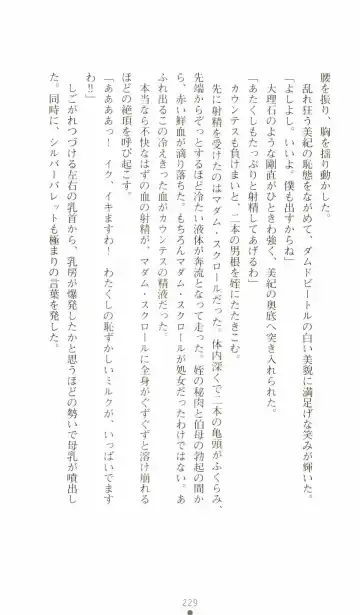 腰を振り、胸を揺り動かした。
　乱れ狂う美紀の恥態をながめて、ダムドビートルの白い美貌に満足げな笑みが輝いた。
「よしよし。いいよ。僕も出すからね」
　大理石のような剛直がひときわ強く、美紀の奥底へ突き入れられた。
「あたくしもたっぷりと射精してあげるわ」
　カウンテスも負けまいと、二本の男根を姪にたたきこむ。
　先に射精を受けたのはマダム・スクロールだった。体内深くで二本の亀頭がふくらみ、
先端からぞっとするほど冷たい液体が奔流となって走った。姪の秘肉と伯母の勃起の間か
ら、赤い鮮血が滴り落ちた。もちろんマダム・スクロールが処女だったわけではない。あ
ふれ出るこの冷えきった血がカウンテスの精液だった。
　本当なら不快なはずの血の射精が、マダム・スクロールに全身がぐずぐずと溶け崩れる
ほどの絶頂を呼び起こす。
「ああああっ！　イク、イキますわ！　わたくしの恥ずかしいミルクが、いっぱいでます
わ!!」
　しごがれつづける左右の乳首から、乳房が爆発したかと思うほどの勢いで母乳が噴出し
た。同時に、シルバーバレットも極まりの言葉を発した。
229